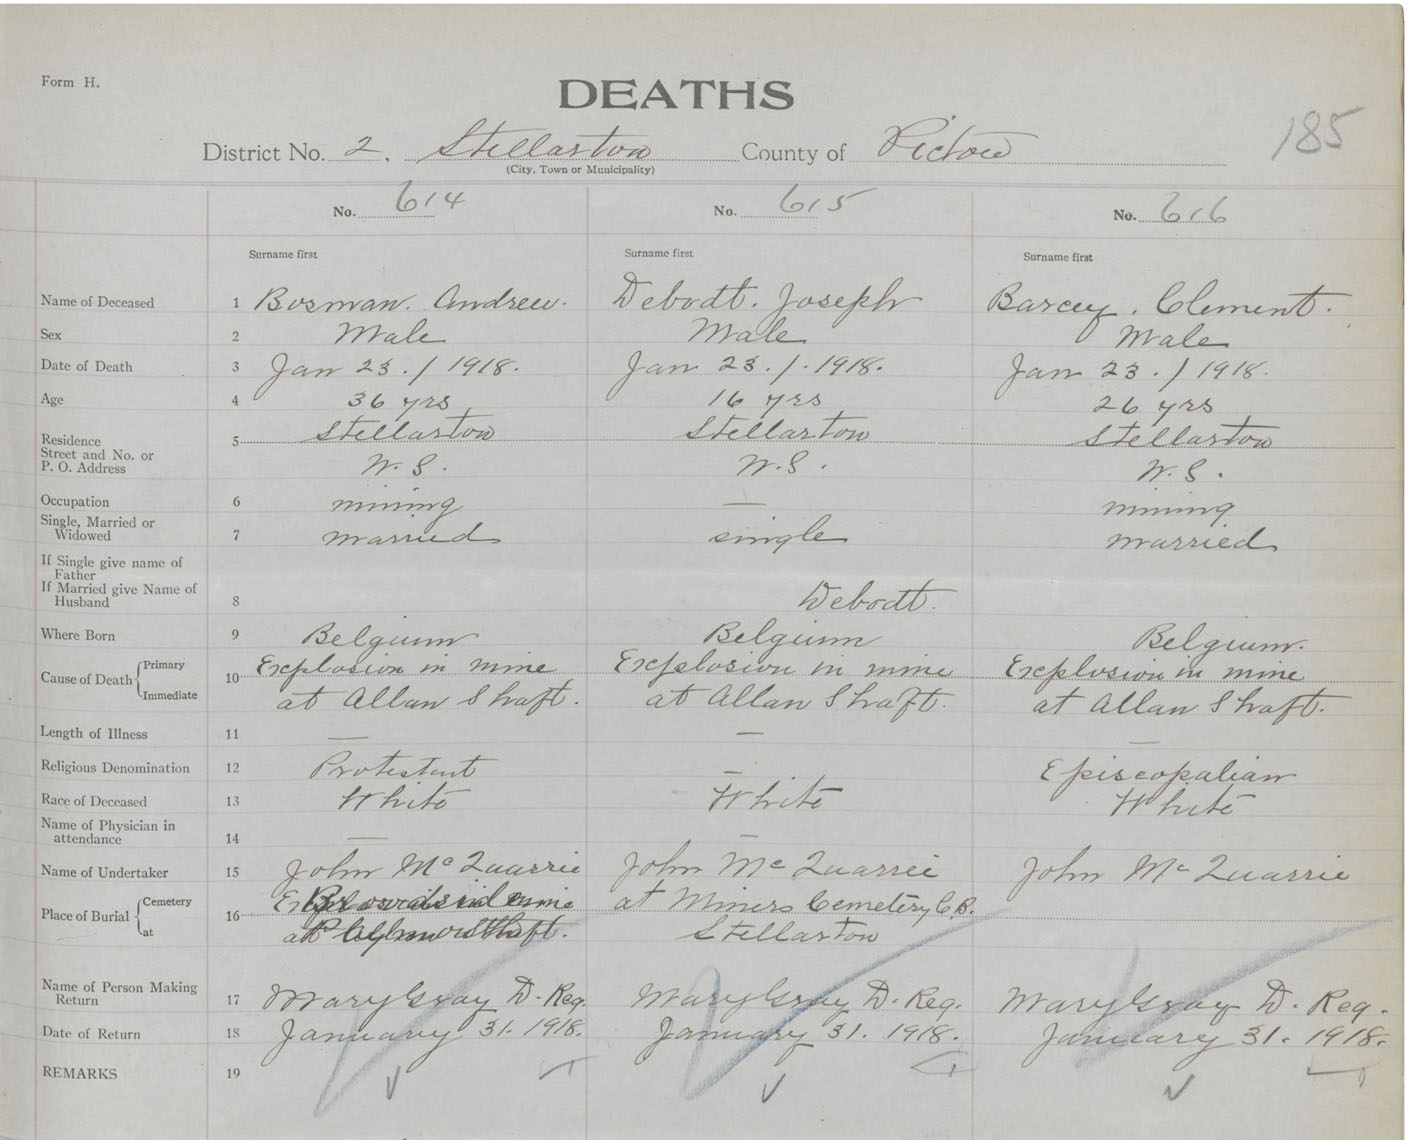 Form H.
DEATHS
185
District No. 2. Stellarton County of Pictou
(City, Town or Municipality)
No. 614 No. 615 No. 616
Surname first Surname first Surname first
Name of Deceased 1 Bosman. Andrew. Debodt. Joseph Barcey. Clement.
Sex 2 Male Male Male
Date of Death 3 Jan 23./1918. Jan 23./.1918. Jan 23./1918.
Age 4 36 yrs 16 yrs 26 yrs
Residence 5 Stellarton Stellarton Stellarton
Street and No. or
P. O. Address N.S. N.S. N.S.
Occupation 6 mining — mining
Single, Married or
Widowed 7 married single married
If Single give name of
Father
If Married give Name of
Husband 8 Debodt.
Where Born 9 Belgium Belgium Belgium.
Cause of Death { Primary 10 Explosion in mine Explosion in mine Explosion in mine
Immediate at Allan Shaft. at Allan Shaft. at Allan Shaft.
Length of Illness 11 — — —
Religious Denomination 12 Protestant — Episcopalian
Race of Deceased 13 White White White
Name of Physician in
attendance 14 — —
Name of Undertaker 15 John McQuarrie John McQuarrei John McQuarrie
Place of Burial { Cemetery 16 at Miners Cemetery C.B.
at Stellarton
Name of Person Making
Return 17 Mary Gray D. Reg. Mary Gray D. Reg. Mary Gray D. Reg.
Date of Return 18 January 31. 1918. January 31. 1918. January 31. 1918.
REMARKS 19